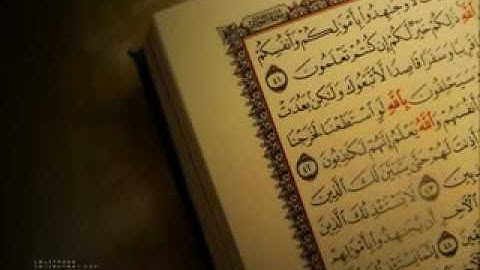 وَجَٰهِدُوا۟ بِأَمْوَٰلِكُمْ وَأَنفُسِكُمْ
ٱللَّهِ ذَٰلِكُمْ خَيْرٌ لَّكُمْ إِن كُنتُمْ تَعْلَمُونَ ٤١
قَرِيبًا وَسَفَرًا قَاصِدًا لَّٱتَّبَعُوكَ وَلَٰكِنۢ بَعُدَتْ
وَسَيَحْلِفُونَ بِٱللَّهِ لَوِ ٱسْتَطَعْنَا لَخَرَجْنَا
أَنفُسَهُمْ وَٱللَّهُ يَعْلَمُ إِنَّهُمْ لَكَٰذِبُونَ ٤٢
أَذِنتَ لَهُمْ حَتَّىٰ يَتَبَيَّنَ لَكَ ٱلَّذِينَ
٤٣ لَا يَسْتَـْٔذِنُكَ ٱلَّذِينَ
ٱلْءَاخِرِ أَن يُجَٰهِدُوا۟ بِأَمْوَٰلِهِمْ